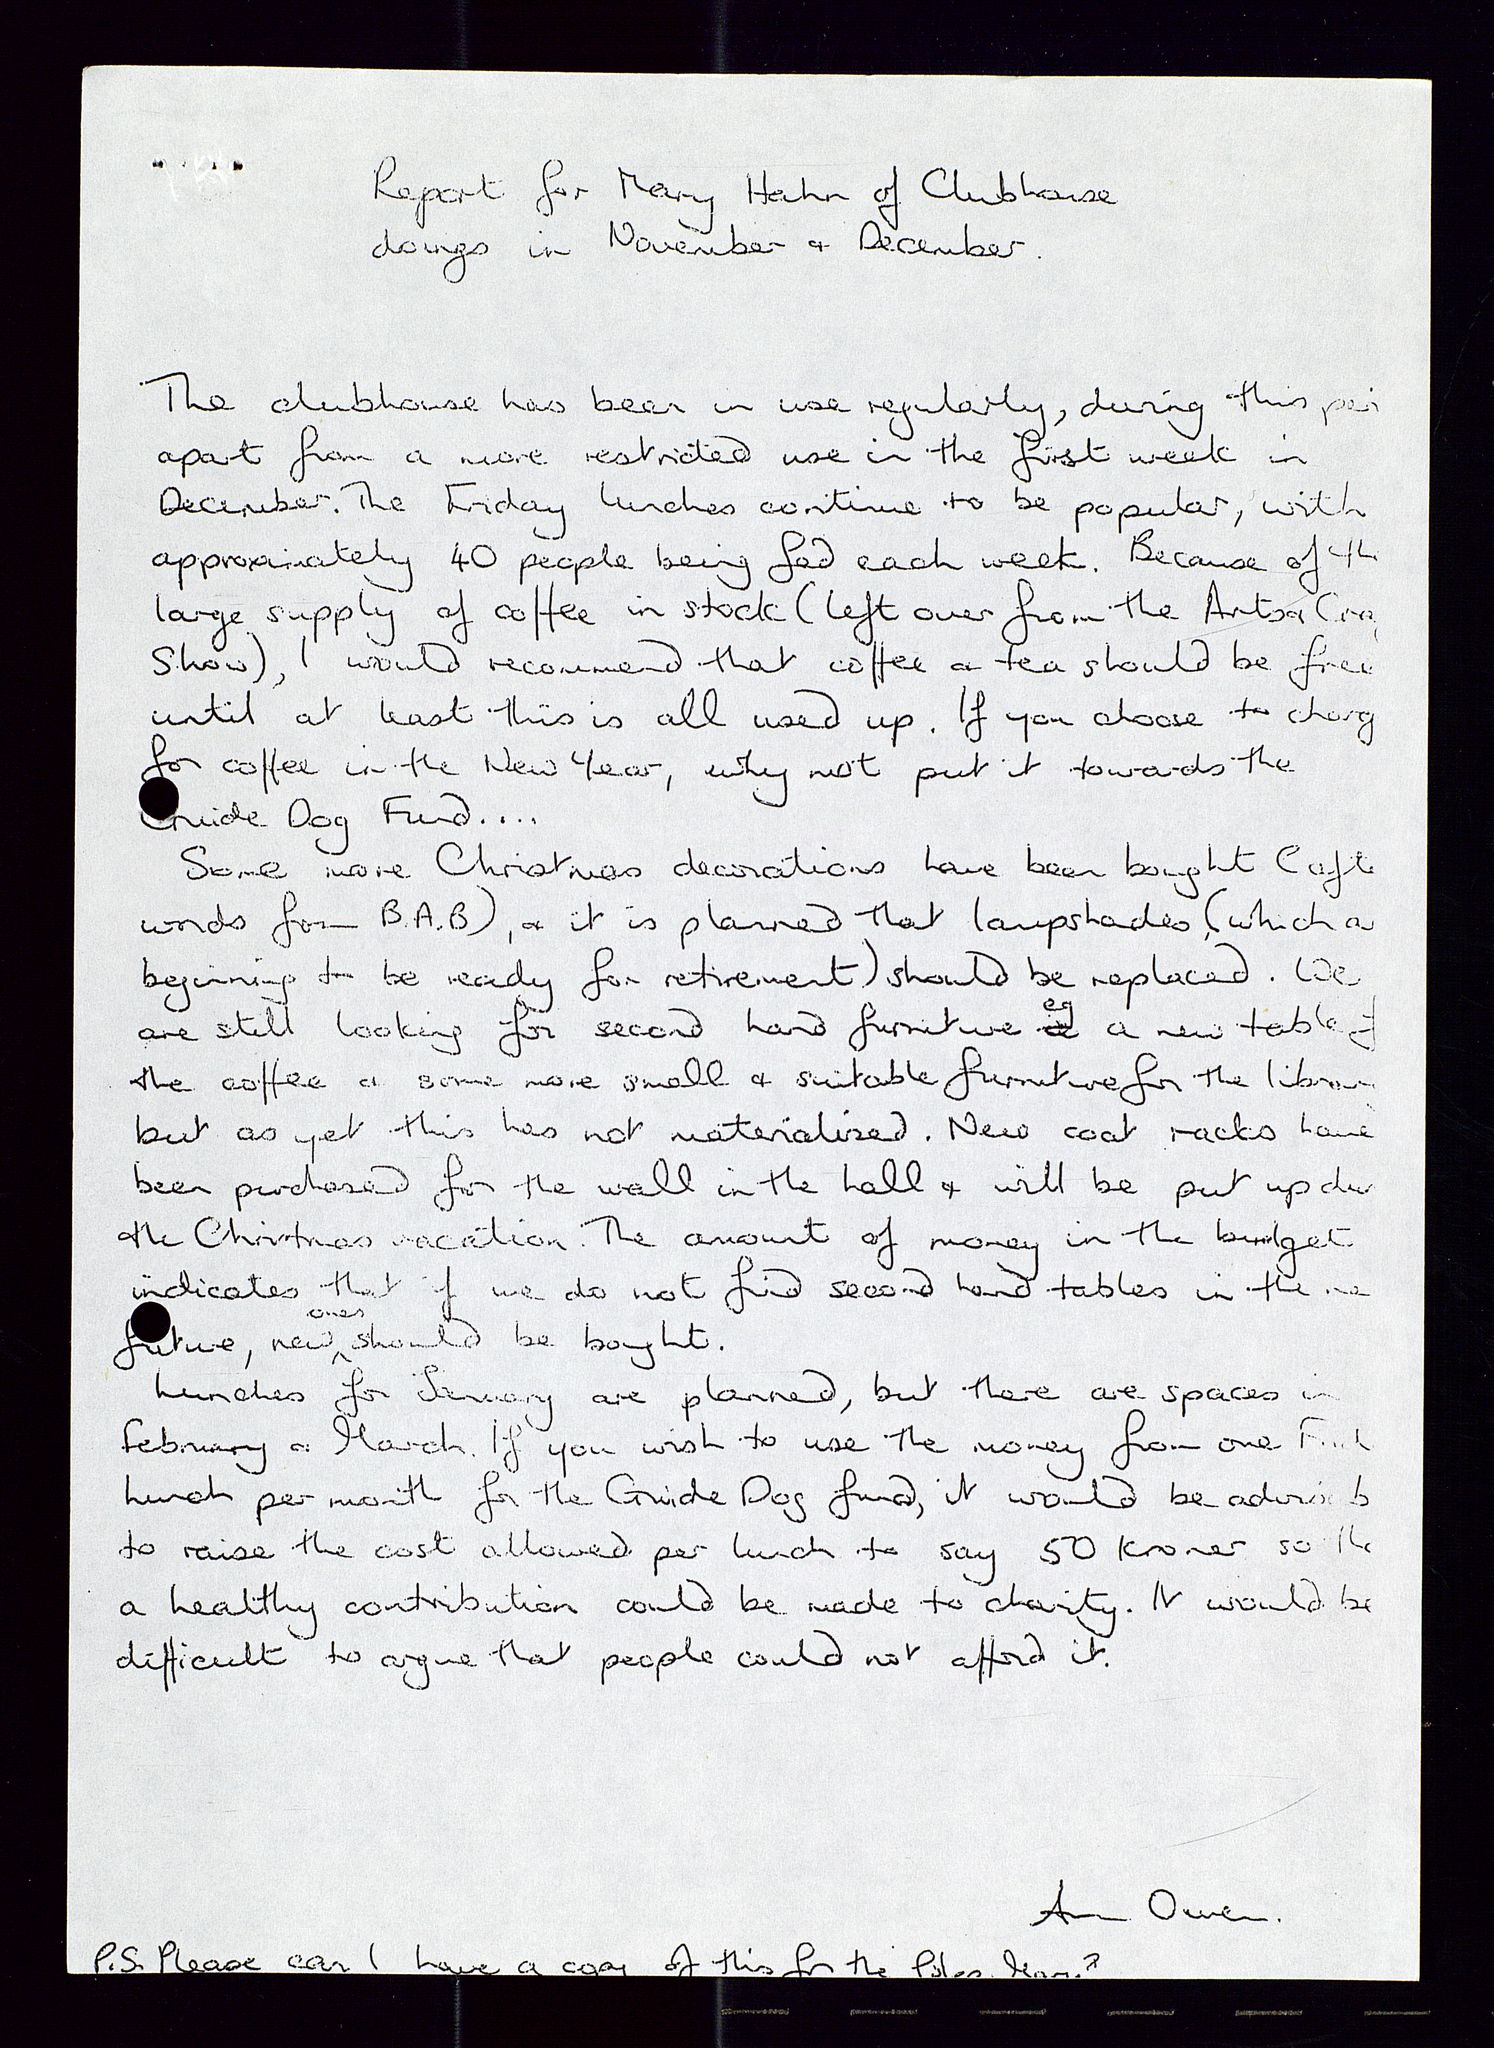 Report for Mary Hahn of Clubhouse
doings in November & December.
The clubhouse has been in use regularly, during this peri
apart from a more restricted use in the first week in
December. The Friday lunches continue to be popular, with
approximately 40 people being fed each week. Because of the
large supply of coffee in stock (left over from the Arts & Cra
Show), I would recommend that coffee & tea should be free
until at least this is all used up. If you choose to charg
for coffee in the New Year, why not put it towards the
Guide Dog Fund....
Some more Christmas decorations have been bought (afte
words from B.A.B), & it is planned that lampshades, (which a
beginning to be ready for retirement) should be replaced. We
are still looking for second hand furniture eg a new table f
the coffee & some more small & suitable furniture for the librar
but as yet this has not materialised. New coat racks have
been purchased for the wall in the hall & will be put up dur
the Christmas vacation. The amount of money in the budget
indicates that if we do not find second hand tables in the ne
future, new ones should be bought.
Lunches for January are planned, but there are spaces in
February & March. If you wish to use the money from one Frid
lunch per month for the Guide Dog fund, it would be advisab
to raise the cost allowed per lunch to say 50 kroner so tha
a healthy contribution could be made to charity. It would be
difficult to argue that people could not afford it.
Ann Owen.
P.S. Please can I have a copy of this for the files, Mary?